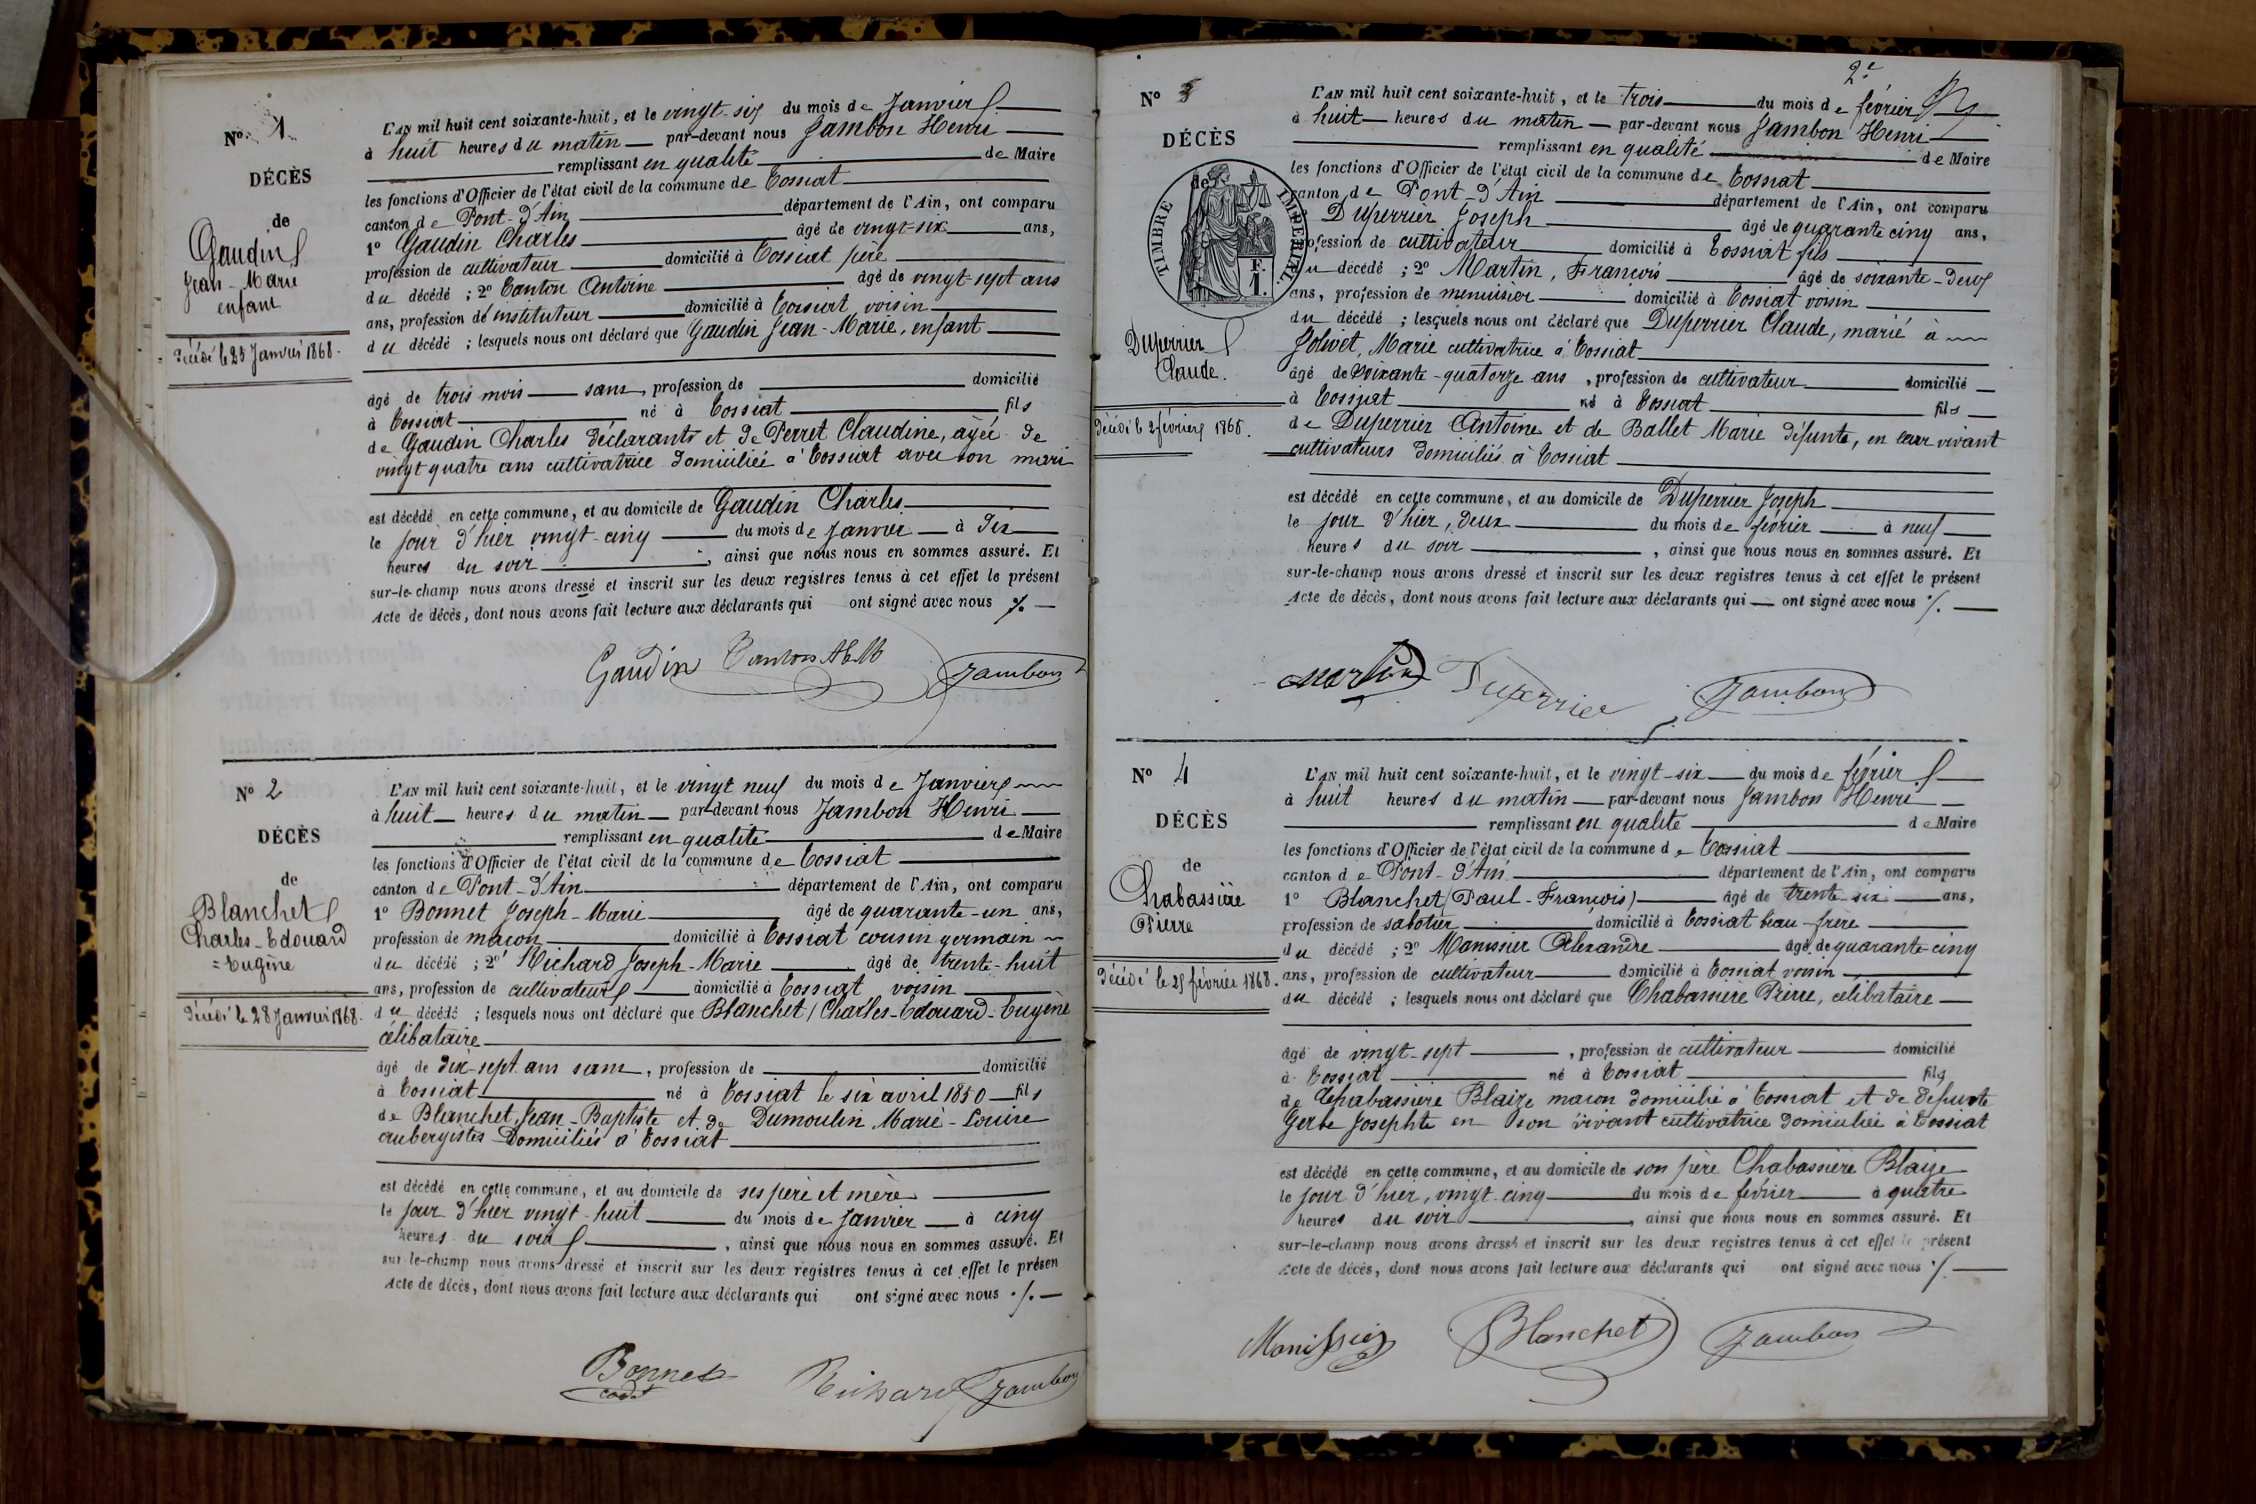 N° 1
DÉCÈS
de
Gaudin
Jean-Marie
enfant
Décédé le 25 Janvier 1868.
L'AN mil huit cent soixante-huit, et le vingt-six du mois de Janvier
à huit heures du matin par-devant nous Jambon Henri
remplissant en qualité de Maire
les fonctions d'Officier de l'état civil de la commune de Tossiat
canton de Pont-d'Ain département de l'Ain, ont comparu
1° Gaudin Charles âgé de vingt-six ans,
profession de cultivateur domicilié à Tossiat père
du décédé ; 2° Tanton Antoine âgé de vingt-sept ans
ans, profession de instituteur domicilié à Tossiat voisin
du décédé ; lesquels nous ont déclaré que Gaudin Jean-Marie, enfant
âgé de trois mois sans, profession de domicilié
à Tossiat né à Tossiat fils
de Gaudin Charles déclarants et de Perret Claudine, âgée de
vingt quatre ans cultivatrice domiciliée à Tossiat avec son mari
est décédé en cette commune, et au domicile de Gaudin Charles
le jour d'hier vingt-cinq du mois de Janvier à dix
heures du soir, ainsi que nous nous en sommes assuré. Et
sur-le-champ nous avons dressé et inscrit sur les deux registres tenus à cet effet le présent
Acte de décès, dont nous avons fait lecture aux déclarants qui ont signé avec nous ./.
Gaudin Tanton Jambon
N° 2
DÉCÈS
de
Blanchet
Charles-Edouard
=Eugène
Décédé le 28 Janvier 1868.
L'AN mil huit cent soixante-huit, et le vingt neuf du mois de Janvier
à huit heures du matin par-devant nous Jambon Henri
remplissant en qualité de Maire
les fonctions d'Officier de l'état civil de la commune de Tossiat
canton de Pont-d'Ain département de l'Ain, ont comparu
1° Bonnet Joseph-Marie âgé de quarante-un ans,
profession de maçon domicilié à Tossiat cousin germain
du décédé ; 2° Richard Joseph-Marie âgé de trente-huit
ans, profession de cultivateur domicilié à Tossiat voisin
du décédé ; lesquels nous ont déclaré que Blanchet / Charles-Edouard-Eugène
célibataire
âgé de dix-sept ans sans, profession de domicilié
à Tossiat né à Tossiat le six avril 1850 fils
de Blanchet Jean-Baptiste et de Dumoulin Marie-Louise
aubergistes domiciliés à Tossiat
est décédé en cette commune, et au domicile de ses père et mère
le jour d'hier vingt-huit du mois de Janvier à cinq
heures du soir, ainsi que nous nous en sommes assuré. Et
sur-le-champ nous avons dressé et inscrit sur les deux registres tenus à cet effet le présen
Acte de décès, dont nous avons fait lecture aux déclarants qui ont signé avec nous ./.
Bonnet Richard Jambon
2e
N° 3
DÉCÈS
de
TIMBRE IMPÉRIAL
Duperrier
Claude.
Décédé le 2 février 1868.
L'AN mil huit cent soixante-huit, et le trois du mois de février
à huit heures du matin par-devant nous Jambon Henri
remplissant en qualité de Maire
les fonctions d'Officier de l'état civil de la commune de Tossiat
canton de Pont-d'Ain département de l'Ain, ont comparu
Duperrier Joseph âgé de quarante cinq ans,
profession de cultivateur domicilié à Tossiat fils
du décédé ; 2° Martin, François âgé de soixante-deux
ans, profession de menuisier domicilié à Tossiat voisin
du décédé ; lesquels nous ont déclaré que Duperrier Claude, marié à
Jolivet, Marie cultivatrice à Tossiat
âgé de soixante-quatorze ans, profession de cultivateur domicilié
à Tossiat né à Tossiat fils
de Duperrier Antoine et de Ballet Marie défunts, en leur vivant
cultivateurs domiciliés à Tossiat
est décédé en cette commune, et au domicile de Duperrier Joseph
le jour d'hier, deux du mois de février à neuf
heures du soir, ainsi que nous nous en sommes assuré. Et
sur-le-champ nous avons dressé et inscrit sur les deux registres tenus à cet effet le présent
Acte de décès, dont nous avons fait lecture aux déclarants qui ont signé avec nous ./.
Martin Duperrier Jambon
N° 4
DÉCÈS
de
Chabassière
Pierre
Décédé le 25 février 1868.
L'AN mil huit cent soixante-huit, et le vingt-six du mois de février
à huit heures du matin par-devant nous Jambon Henri
remplissant en qualité de Maire
les fonctions d'Officier de l'état civil de la commune de Tossiat
canton de Pont-d'Ain département de l'Ain, ont comparu
1° Blanchet (Paul-François) âgé de trente-six ans,
profession de sabotier domicilié à Tossiat beau-frère
du décédé ; 2° Manissier Alexandre âgé de quarante-cinq
ans, profession de cultivateur domicilié à Tossiat voisin
du décédé ; lesquels nous ont déclaré que Chabassière Pierre, célibataire
âgé de vingt-sept, profession de cultivateur domicilié
à Tossiat né à Tossiat fils
de Chabassière Blaize maçon domicilié à Tossiat et de défunte
Gerbe Josephte en son vivant cultivatrice domiciliée à Tossiat
est décédé en cette commune, et au domicile de son père Chabassière Blaize
le jour d'hier, vingt-cinq du mois de février à quatre
heures du soir, ainsi que nous nous en sommes assuré. Et
sur-le-champ nous avons dressé et inscrit sur les deux registres tenus à cet effet le présent
Acte de décès, dont nous avons fait lecture aux déclarants qui ont signé avec nous ./.
Manissier Blanchet Jambon